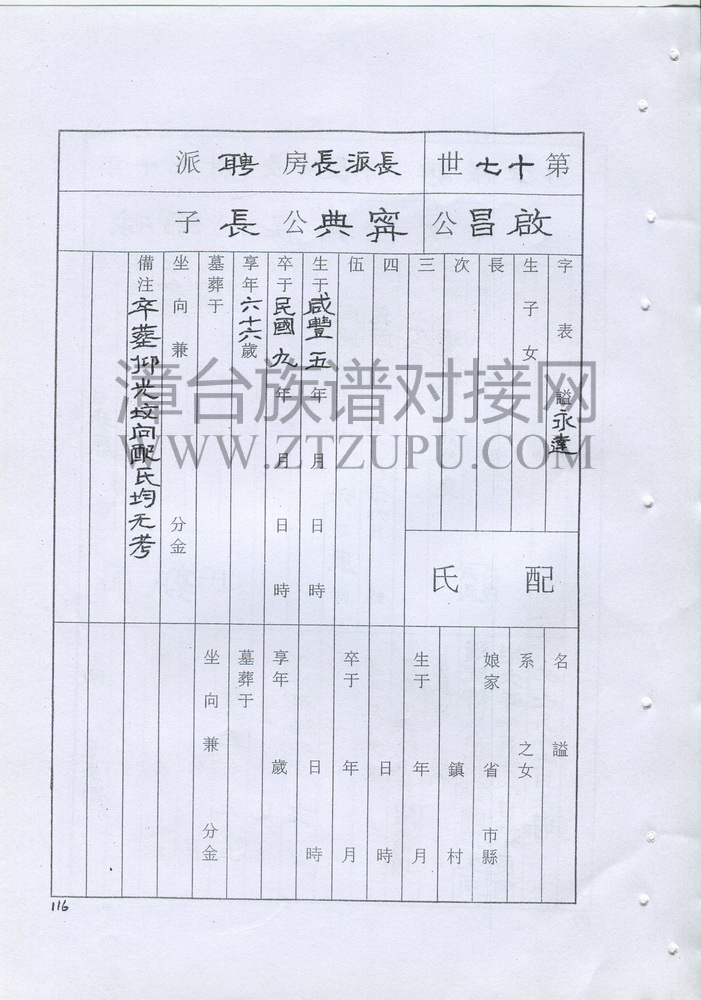 第十七世
長派長房聘派
啟昌公
寗典公長子
字表謚永達
生子女
長
次
三
四
伍
生于咸豐五年月日時
卒于民國九年月日時
享年六十六歲
墓葬于
坐向兼分金
備注卒葬仰光坟向配氏均无考
配氏
名謚
系之女
娘家省市縣
鎮村
生于年月
日時
卒于年月
日時
享年歲
墓葬于
坐向兼分金
漳台族谱对接网
WWW.ZTZUPU.COM
116